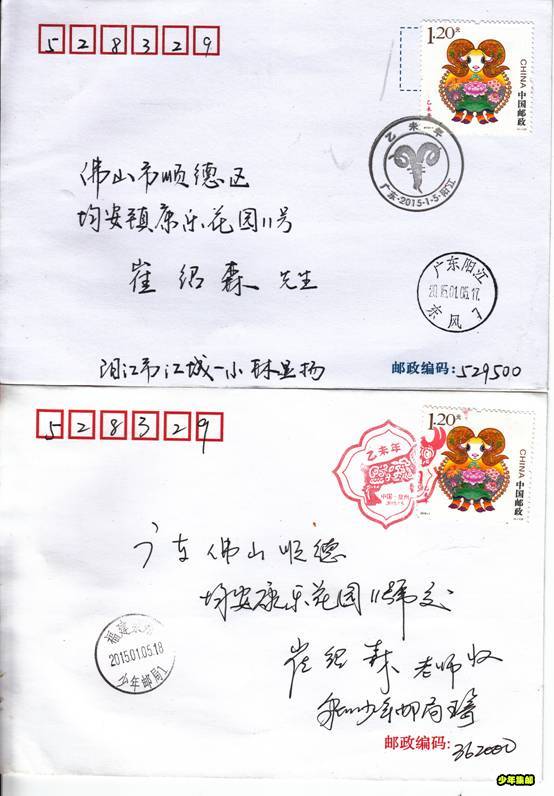 528329
1.20元
CHINA
中国邮政
乙未年
广东·2015-1-5·阳江
佛山市顺德区
均安镇康乐花园11号
崔绍森 先生
广东阳江
2015.01.05.17
东风
阳江市江城一小林显扬
邮政编码:529500
528329
1.20元
CHINA
中国邮政
乙未年
中国·泉州
广东佛山顺德
均安康乐花园11号交
崔绍森老师收
福建泉州
2015.01.05.18
少年邮局1
泉州少年邮局
邮政编码:362000
少年集邮